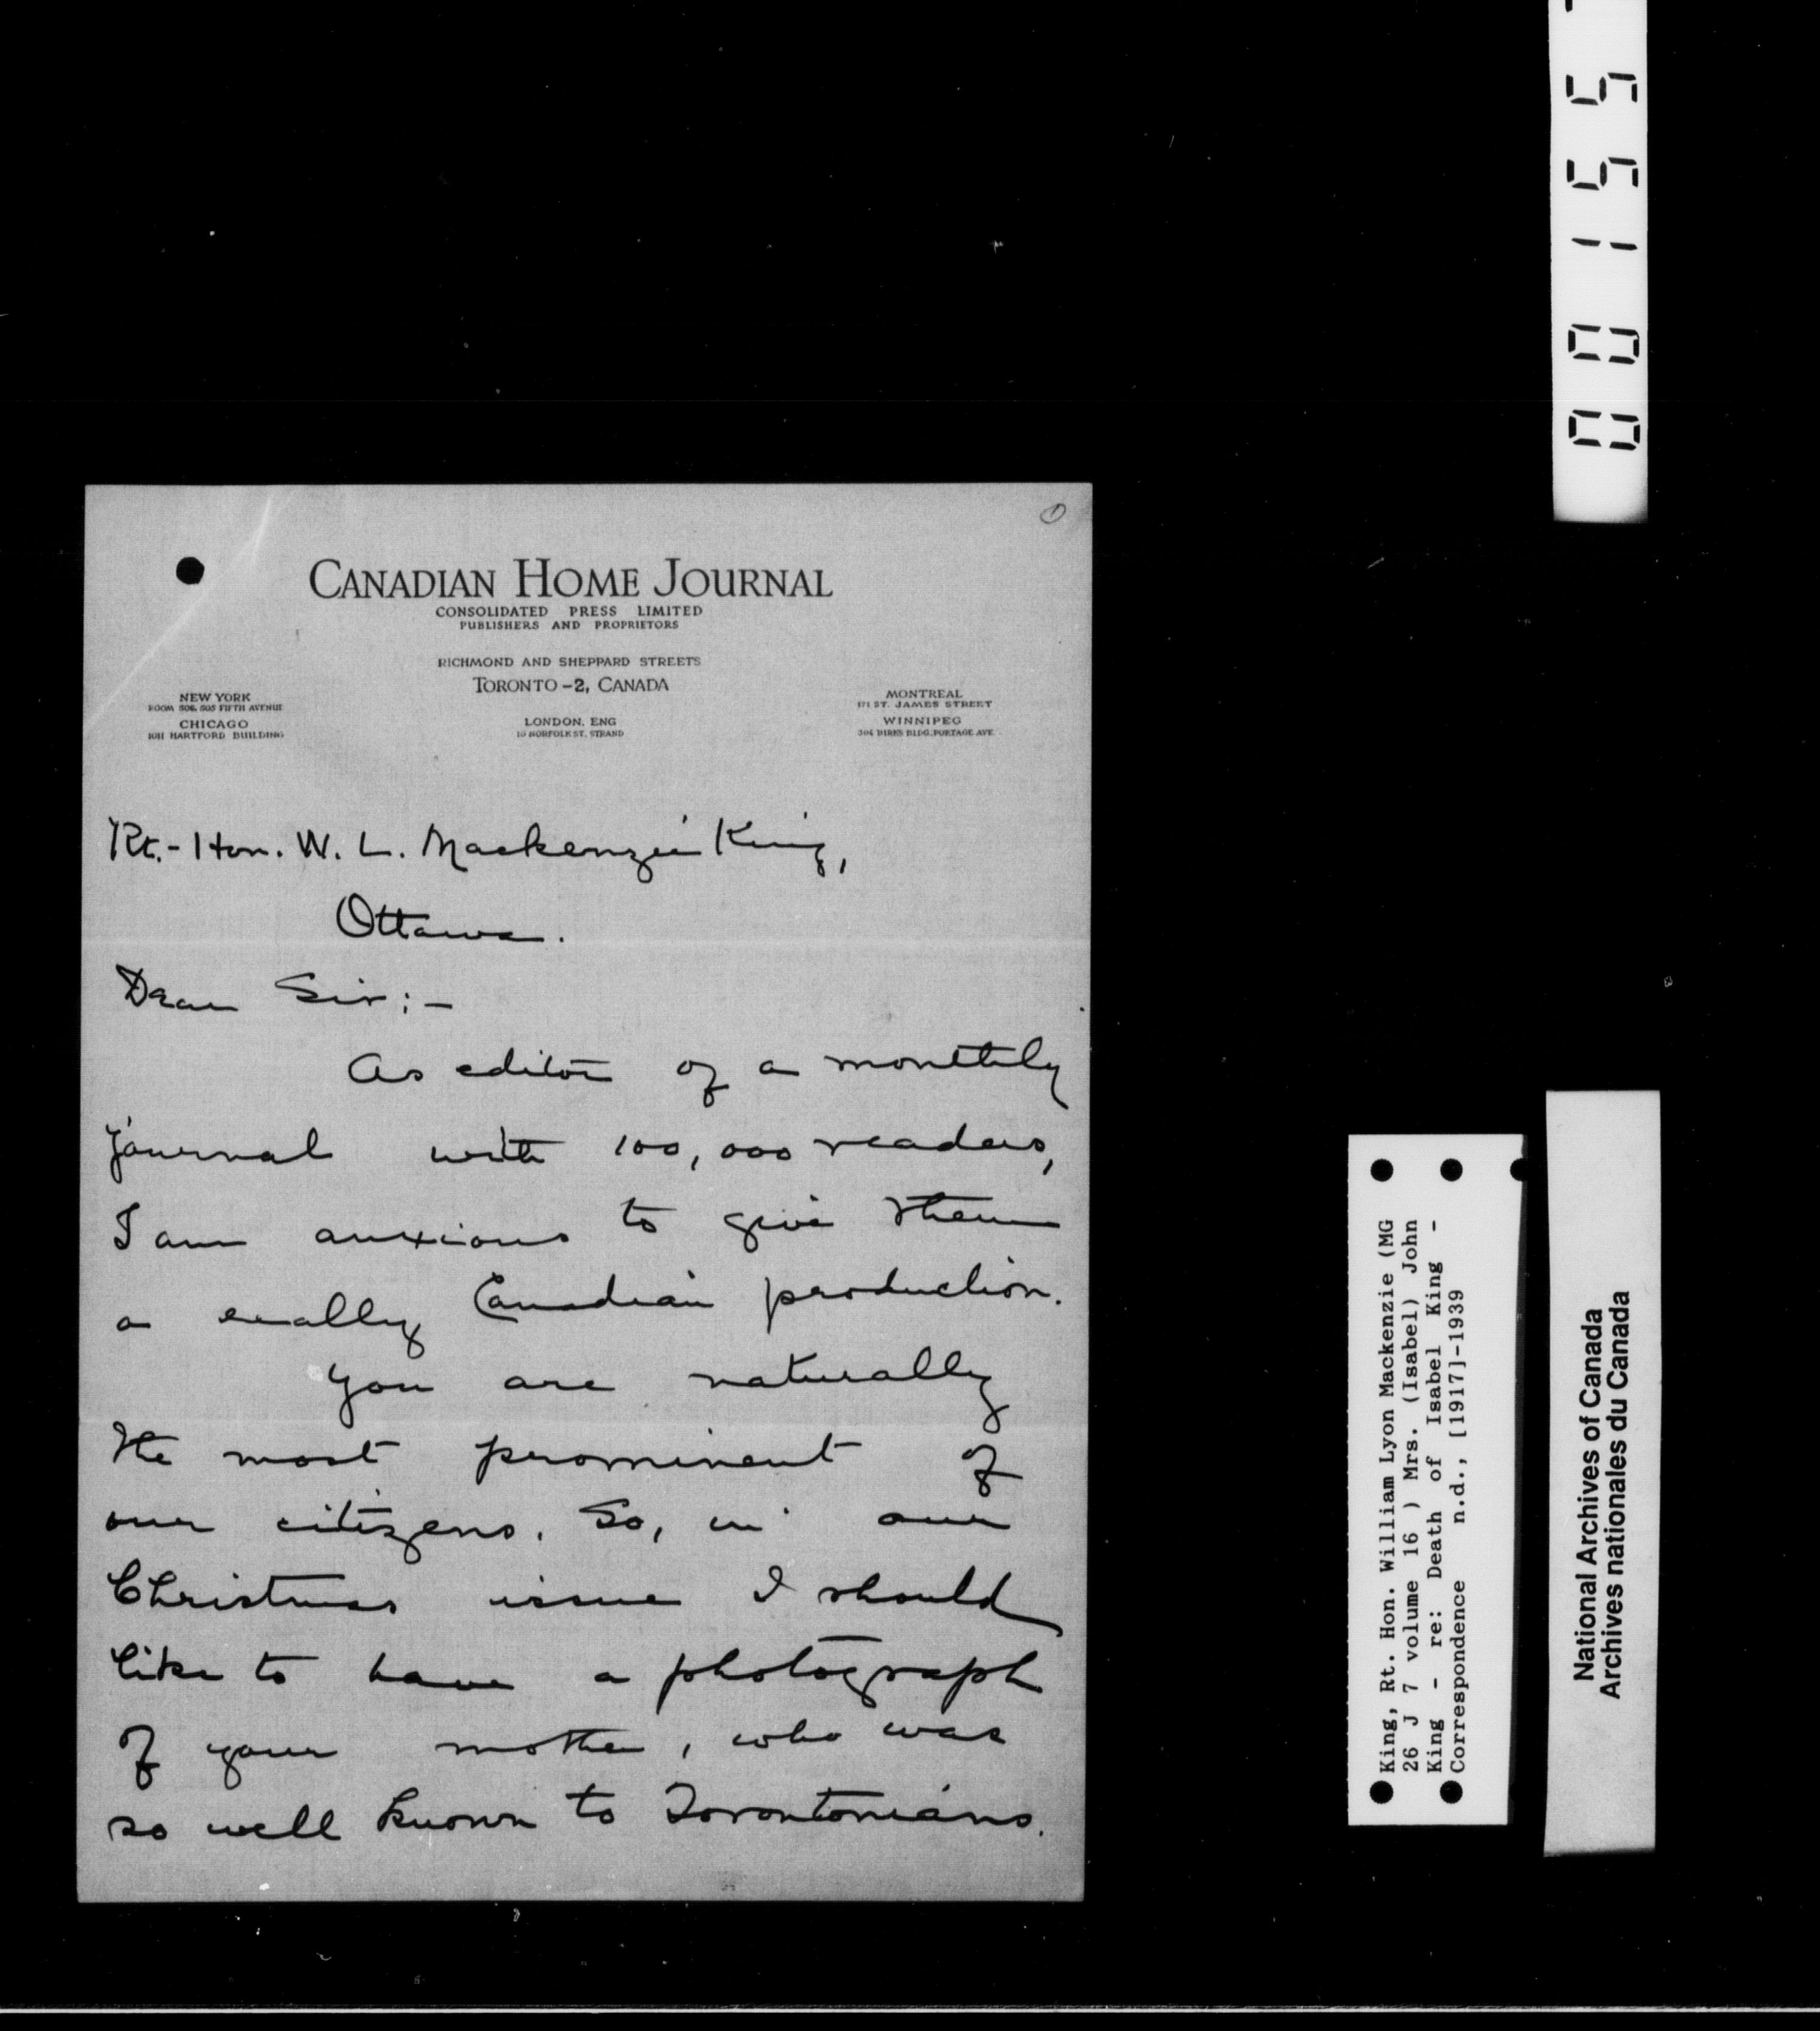 ①
CANADIAN HOME JOURNAL
CONSOLIDATED PRESS LIMITED
PUBLISHERS AND PROPRIETORS
RICHMOND AND SHEPPARD STREETS
TORONTO-2, CANADA
NEW YORK
ROOM 506, 505 FIFTH AVENUE
CHICAGO
1011 HARTFORD BUILDING
LONDON, ENG
10 NORFOLK ST. STRAND
MONTREAL
171 ST. JAMES STREET
WINNIPEG
304 BIRKS BLDG. PORTAGE AVE
Rt.-Hon. W. L. Mackenzie King,
Ottawa.
Dear Sir;-
As editor of a monthly
journal with 100,000 readers,
I am anxious to give them
a really Canadian production.
You are naturally
the most prominent of
our citizens. So, in our
Christmas issue I should
like to have a photograph
of your mother, who was
so well known to Torontonians.
King, Rt. Hon. William Lyon Mackenzie (MG
26 J 7 volume 16 ) Mrs. (Isabel) John
King - re: Death of Isabel King -
Correspondence n.d., [1917]-1939
National Archives of Canada
Archives nationales du Canada
00155